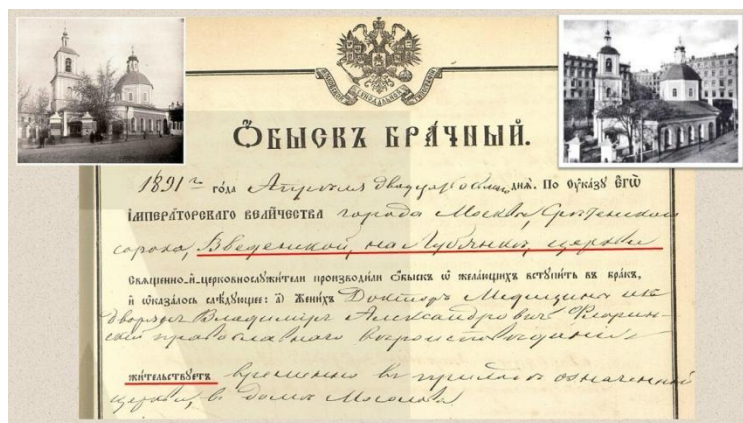 Ѻбыскъ брачный.
1891 го́да Апрѣля двадцать дня̀. По Ѹ҆ка́зу Єгѡ̀
Імперáторскагѡ вели́чества города Москвы, Срѣтенскаго
сорока, Введенской, на Лубянкѣ, церкви
Свѧще́нно-и҆-церковнослѹжи́тели производи́ли ѻ҆́быскъ ѡ҆ жела́ющихъ встꙋпи́ть въ бра́къ,
и҆ ѡ҆каза́лось слѣ́дꙋющее: а҃) Жени́хъ Докторъ Медицины изъ
дворянъ Владимиръ Александровичъ Флорин-
скій православнаго вѣроисповѣданія
жи́тельствꙋетъ временно въ приходѣ означенной
церкви, въ домѣ